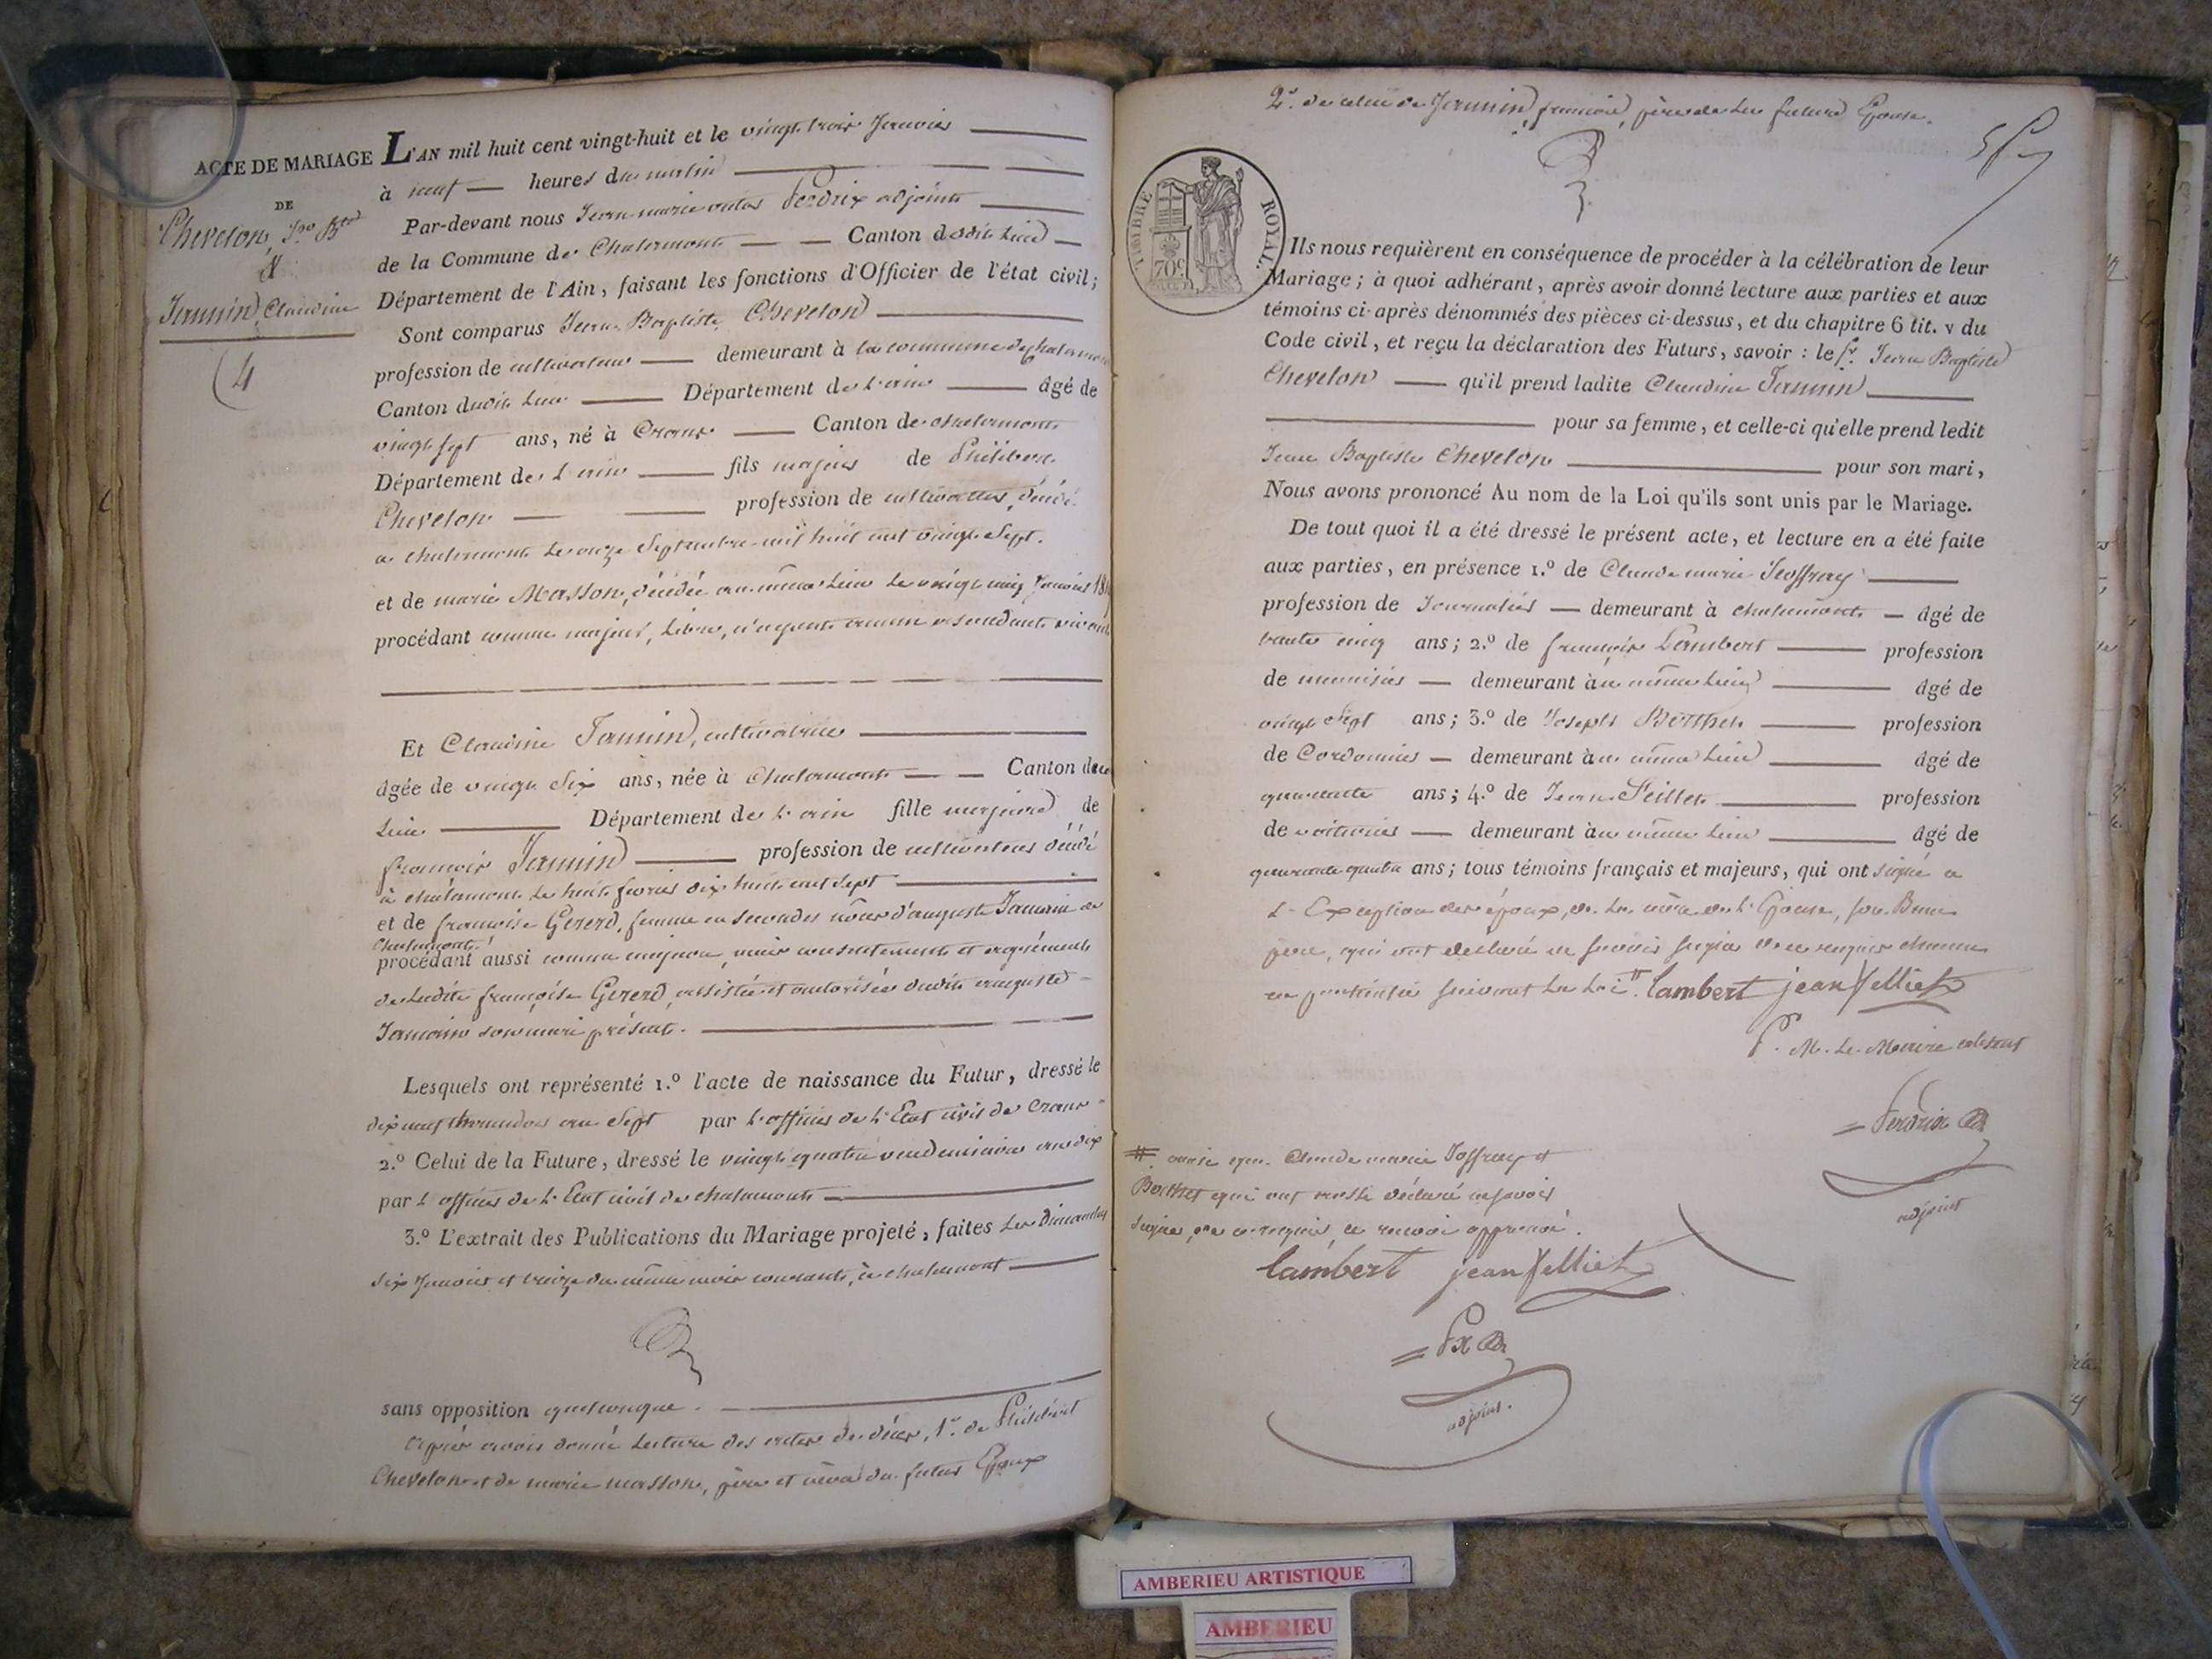 ACTE DE MARIAGE
DE
Chevelon, Jn Bte
&
Jannin, Claudine
4
L'AN mil huit cent vingt-huit et le vingt trois Janvier
à neuf heures du matin
Par-devant nous Jean marie Perdrix adjoint
de la Commune de Chalamont Canton dudit Lieu
Département de l'Ain, faisant les fonctions d'Officier de l'état civil;
Sont comparus Jean Baptiste Chevelon
profession de cultivateur demeurant à la commune de chalamont
Canton dudit Lieu Département de L'ain âgé de
vingt sept ans, né à Crans Canton de chalamont
Département de L'ain fils majeur de Philibert
Chevelon profession de cultivateur, décédé
a chalamont Le onze Septembre mil huit cent vingt Sept.
et de marie Masson, décédée au même Lieu Le vingt cinq Janvier
procédant comme majeur, Libre, n'ayant aucun ascendant vivant
Et Claudine Jannin, cultivatrice
âgée de vingt Six ans, née à Chalamont Canton dud
Lieu Département de L'ain fille majeure de
francois Jannin profession de cultivateur décédé
à chalamont Le huit fevrier dix huit cent sept
et de francoise Gererd, femme en secondes nôces d'auguste Jannin de
chalamont
procédant aussi comme majeure, mais consentement et agrément
de Ladite françoise Gererd, assistée et autorisée dudit auguste
Jannin son mari présent.
Lesquels ont représenté 1.º l'acte de naissance du Futur, dressé le
dix neuf thermidor an Sept par L'officier de L'Etat civil de Crans
2.º Celui de la Future, dressé le vingt quatre vendemiaire an dix
par L'officier de L'Etat civil de chalamont
3.º L'extrait des Publications du Mariage projeté, faites Les Dimanches
Six Janvier et treize du même mois courant, à chalamont
sans opposition quelconque.
Après avoir donné Lecture des actes de décès, 1º. de Philibert
Chevelon et de marie masson, père et mère du futur Epoux
2º. de celui de Jannin francois, père de La future Epouse.
TIMBRE ROYAL
70 c
Ils nous requièrent en conséquence de procéder à la célébration de leur
Mariage; à quoi adhérant, après avoir donné lecture aux parties et aux
témoins ci-après dénommés des pièces ci-dessus, et du chapitre 6 tit. v du
Code civil, et reçu la déclaration des Futurs, savoir: le Sr. Jean Baptiste
Chevelon qu'il prend ladite Claudine Jannin
pour sa femme, et celle-ci qu'elle prend ledit
Jean Baptiste Chevelon pour son mari,
Nous avons prononcé Au nom de la Loi qu'ils sont unis par le Mariage.
De tout quoi il a été dressé le présent acte, et lecture en a été faite
aux parties, en présence 1.º de Claude marie Joffray
profession de Journalier demeurant à chalamont âgé de
trente cinq ans; 2.º de françois Lambert profession
de menuisier demeurant au même Lieu âgé de
vingt Sept ans; 3.º de Joseph Berthet profession
de Cordonnier demeurant au même Lieu âgé de
quarante ans; 4.º de Jean Felliet profession
de voiturier demeurant au même Lieu âgé de
quarante quatre ans; tous témoins français et majeurs, qui ont signé a
L'Exception des époux, de La mère de L'Epouse, son Beau
père, qui ont declaré ne savoir signer de ce requis chacun
en particulier suivant La Loi #. Lambert jean felliet
P. M. Le Maire absent
Perdrix
adjoint
#. ainsi que Claude marie Joffray et
Berthet qui ont aussi déclaré ne savoir
signer, de ce requis, ce renvoi approuvé.
Lambert jean felliet
Px
adjoint.
AMBERIEU ARTISTIQUE
AMBERIEU